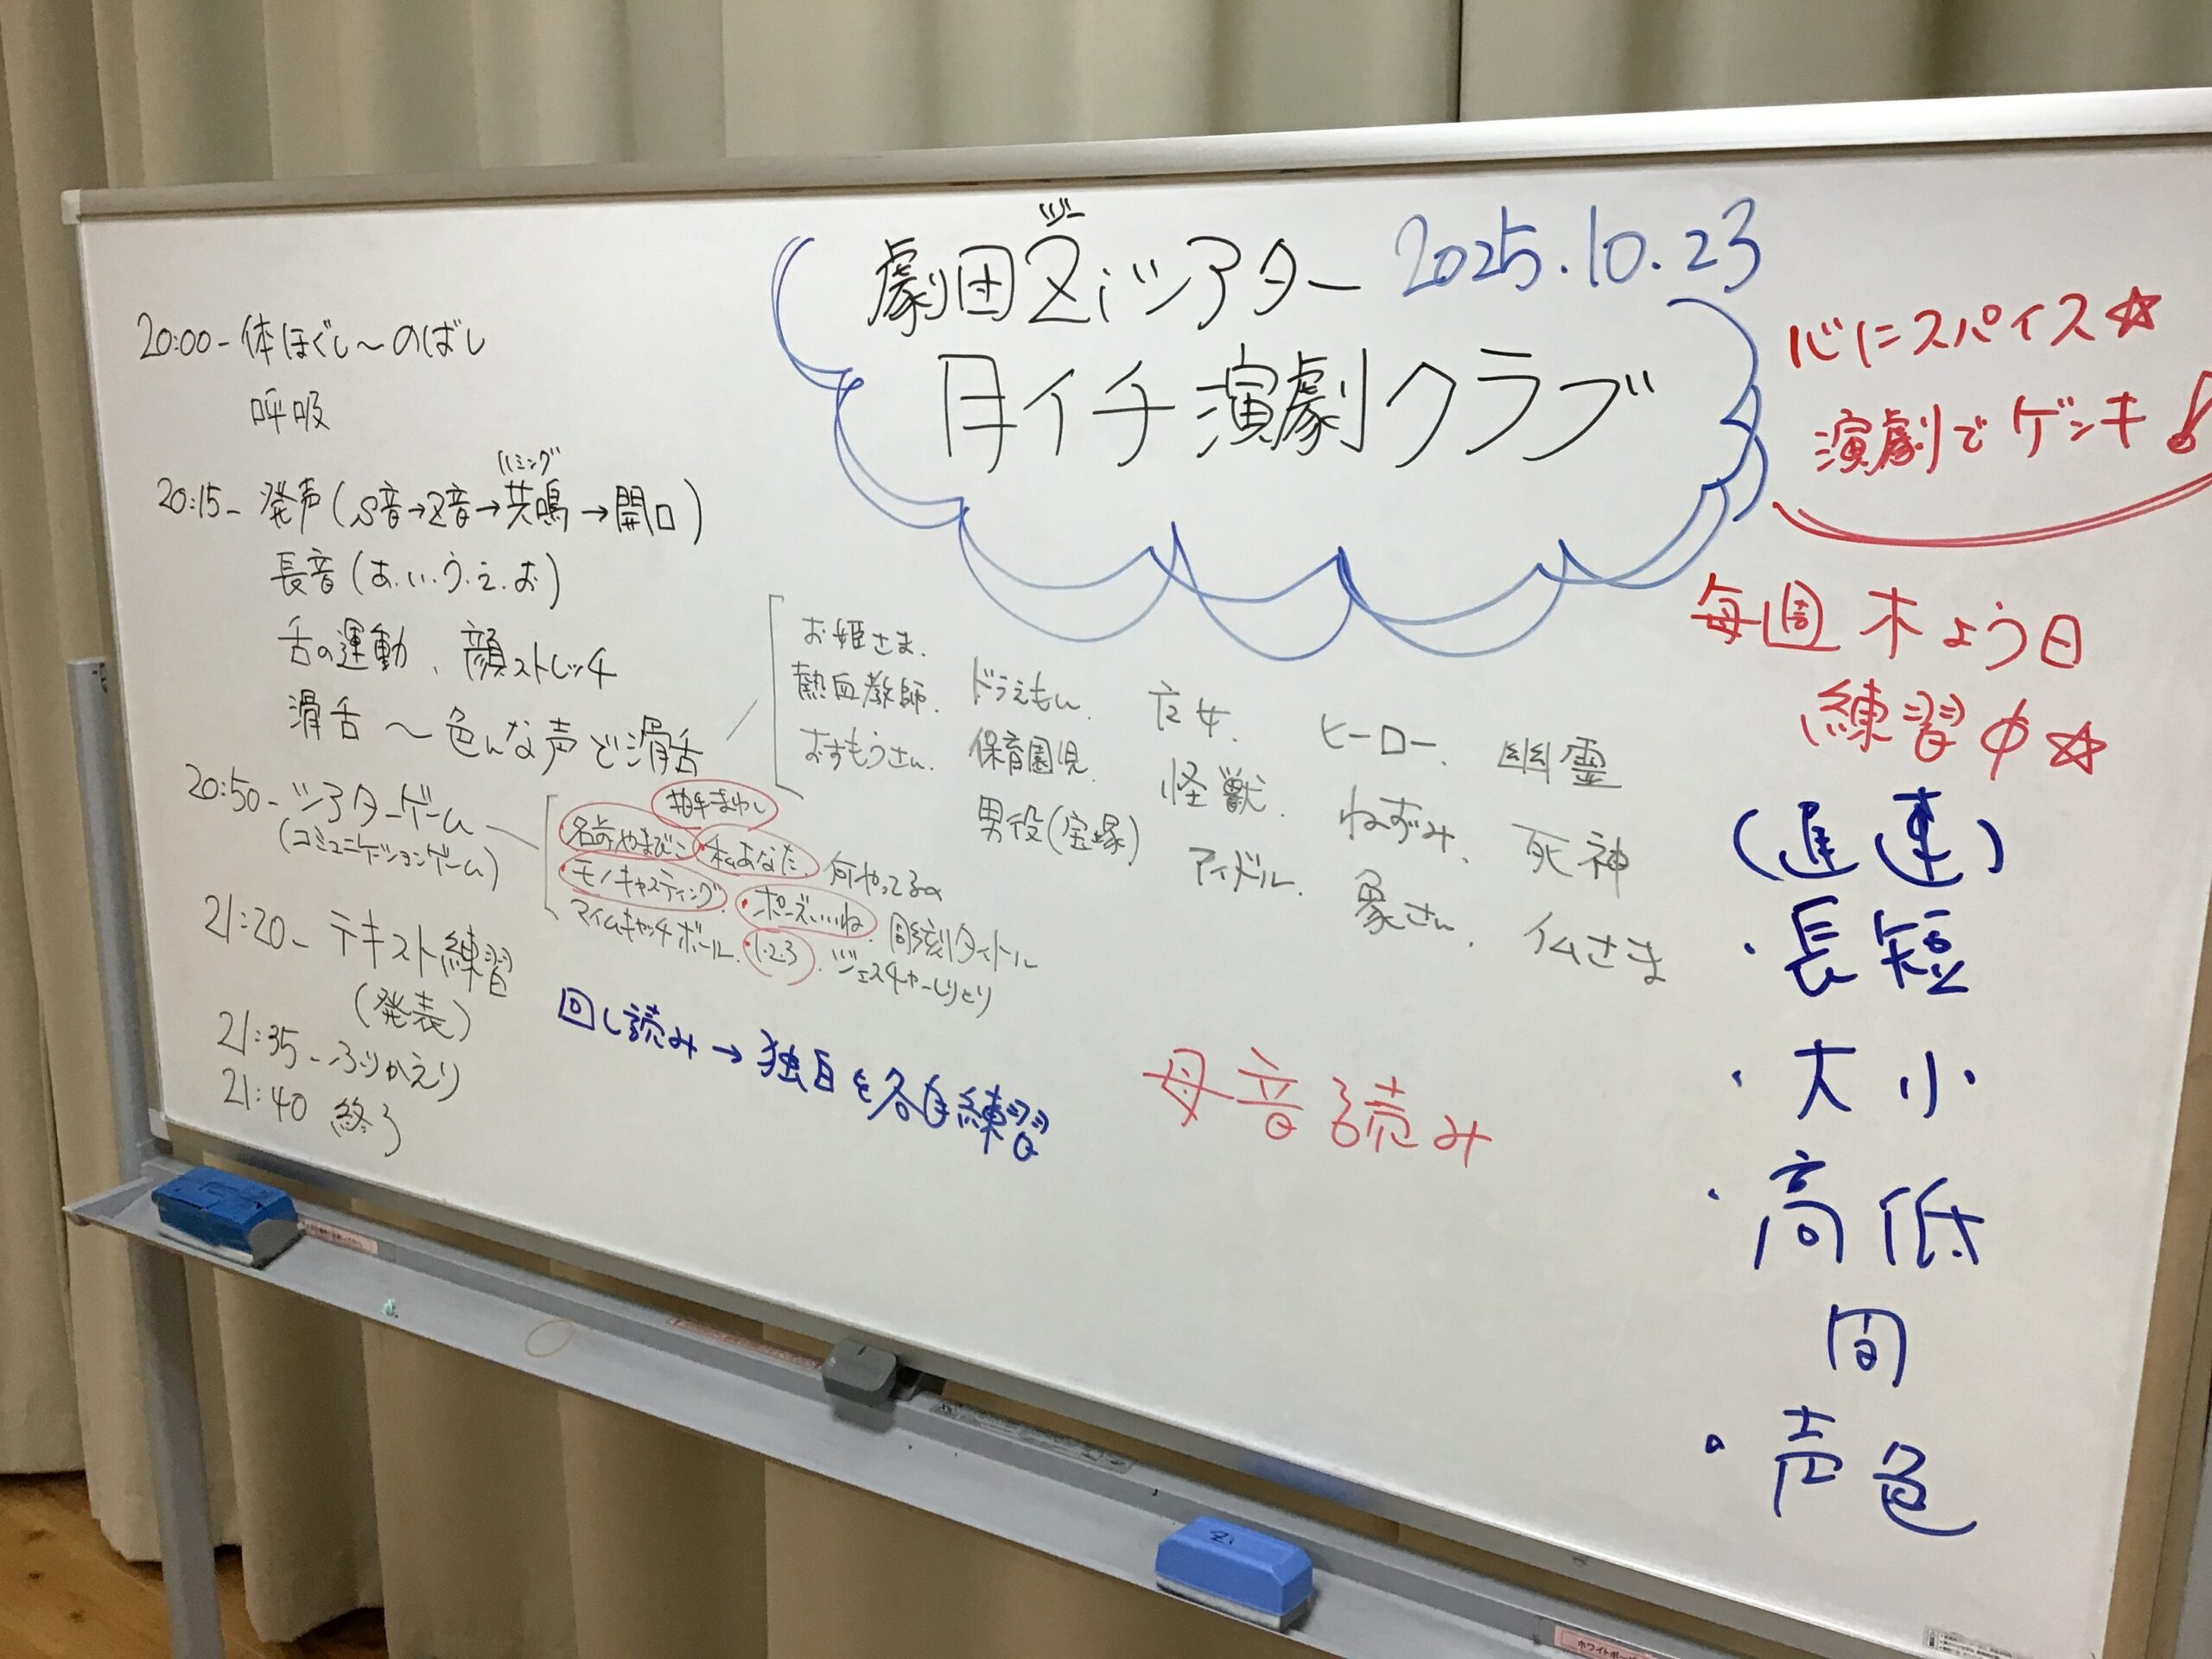 ジー
劇団Ziシアター 2025.10.23
月イチ演劇クラブ
心にスパイス☆
演劇でゲンキ!
毎週木よう日
練習中☆
20:00-体ほぐし〜のばし
呼吸
ハミング
20:15-発声(S音→Z音→共鳴→開口)
長音(あ.い.う.え.お)
舌の運動、顔ストレッチ
滑舌〜色んな声で滑舌
お姫さま.
熱血教師.
おすもうさん.
ドラえもん.
保育園児.
男役(宝塚)
怪獣.
アイドル.
ヒーロー.
ねずみ.
象さん.
幽霊
死神
仏さま
20:50-シアターゲーム
(コミュニケーションゲーム)
拍手まわし
名前やまびこ ・私あなた. 何やってるの
・モノキャスティング. ・ポーズいいね. 彫刻タイトル
マイムキャッチボール. ・1.2.3. ジェスチャーしりとり
21:20-テキスト練習
(発表)
21:35-ふりかえり
21:40 終了
回し読み→独白を各自練習
母音読み
(遅速)
・長短
・大小
・高低
間
・声色
Zi